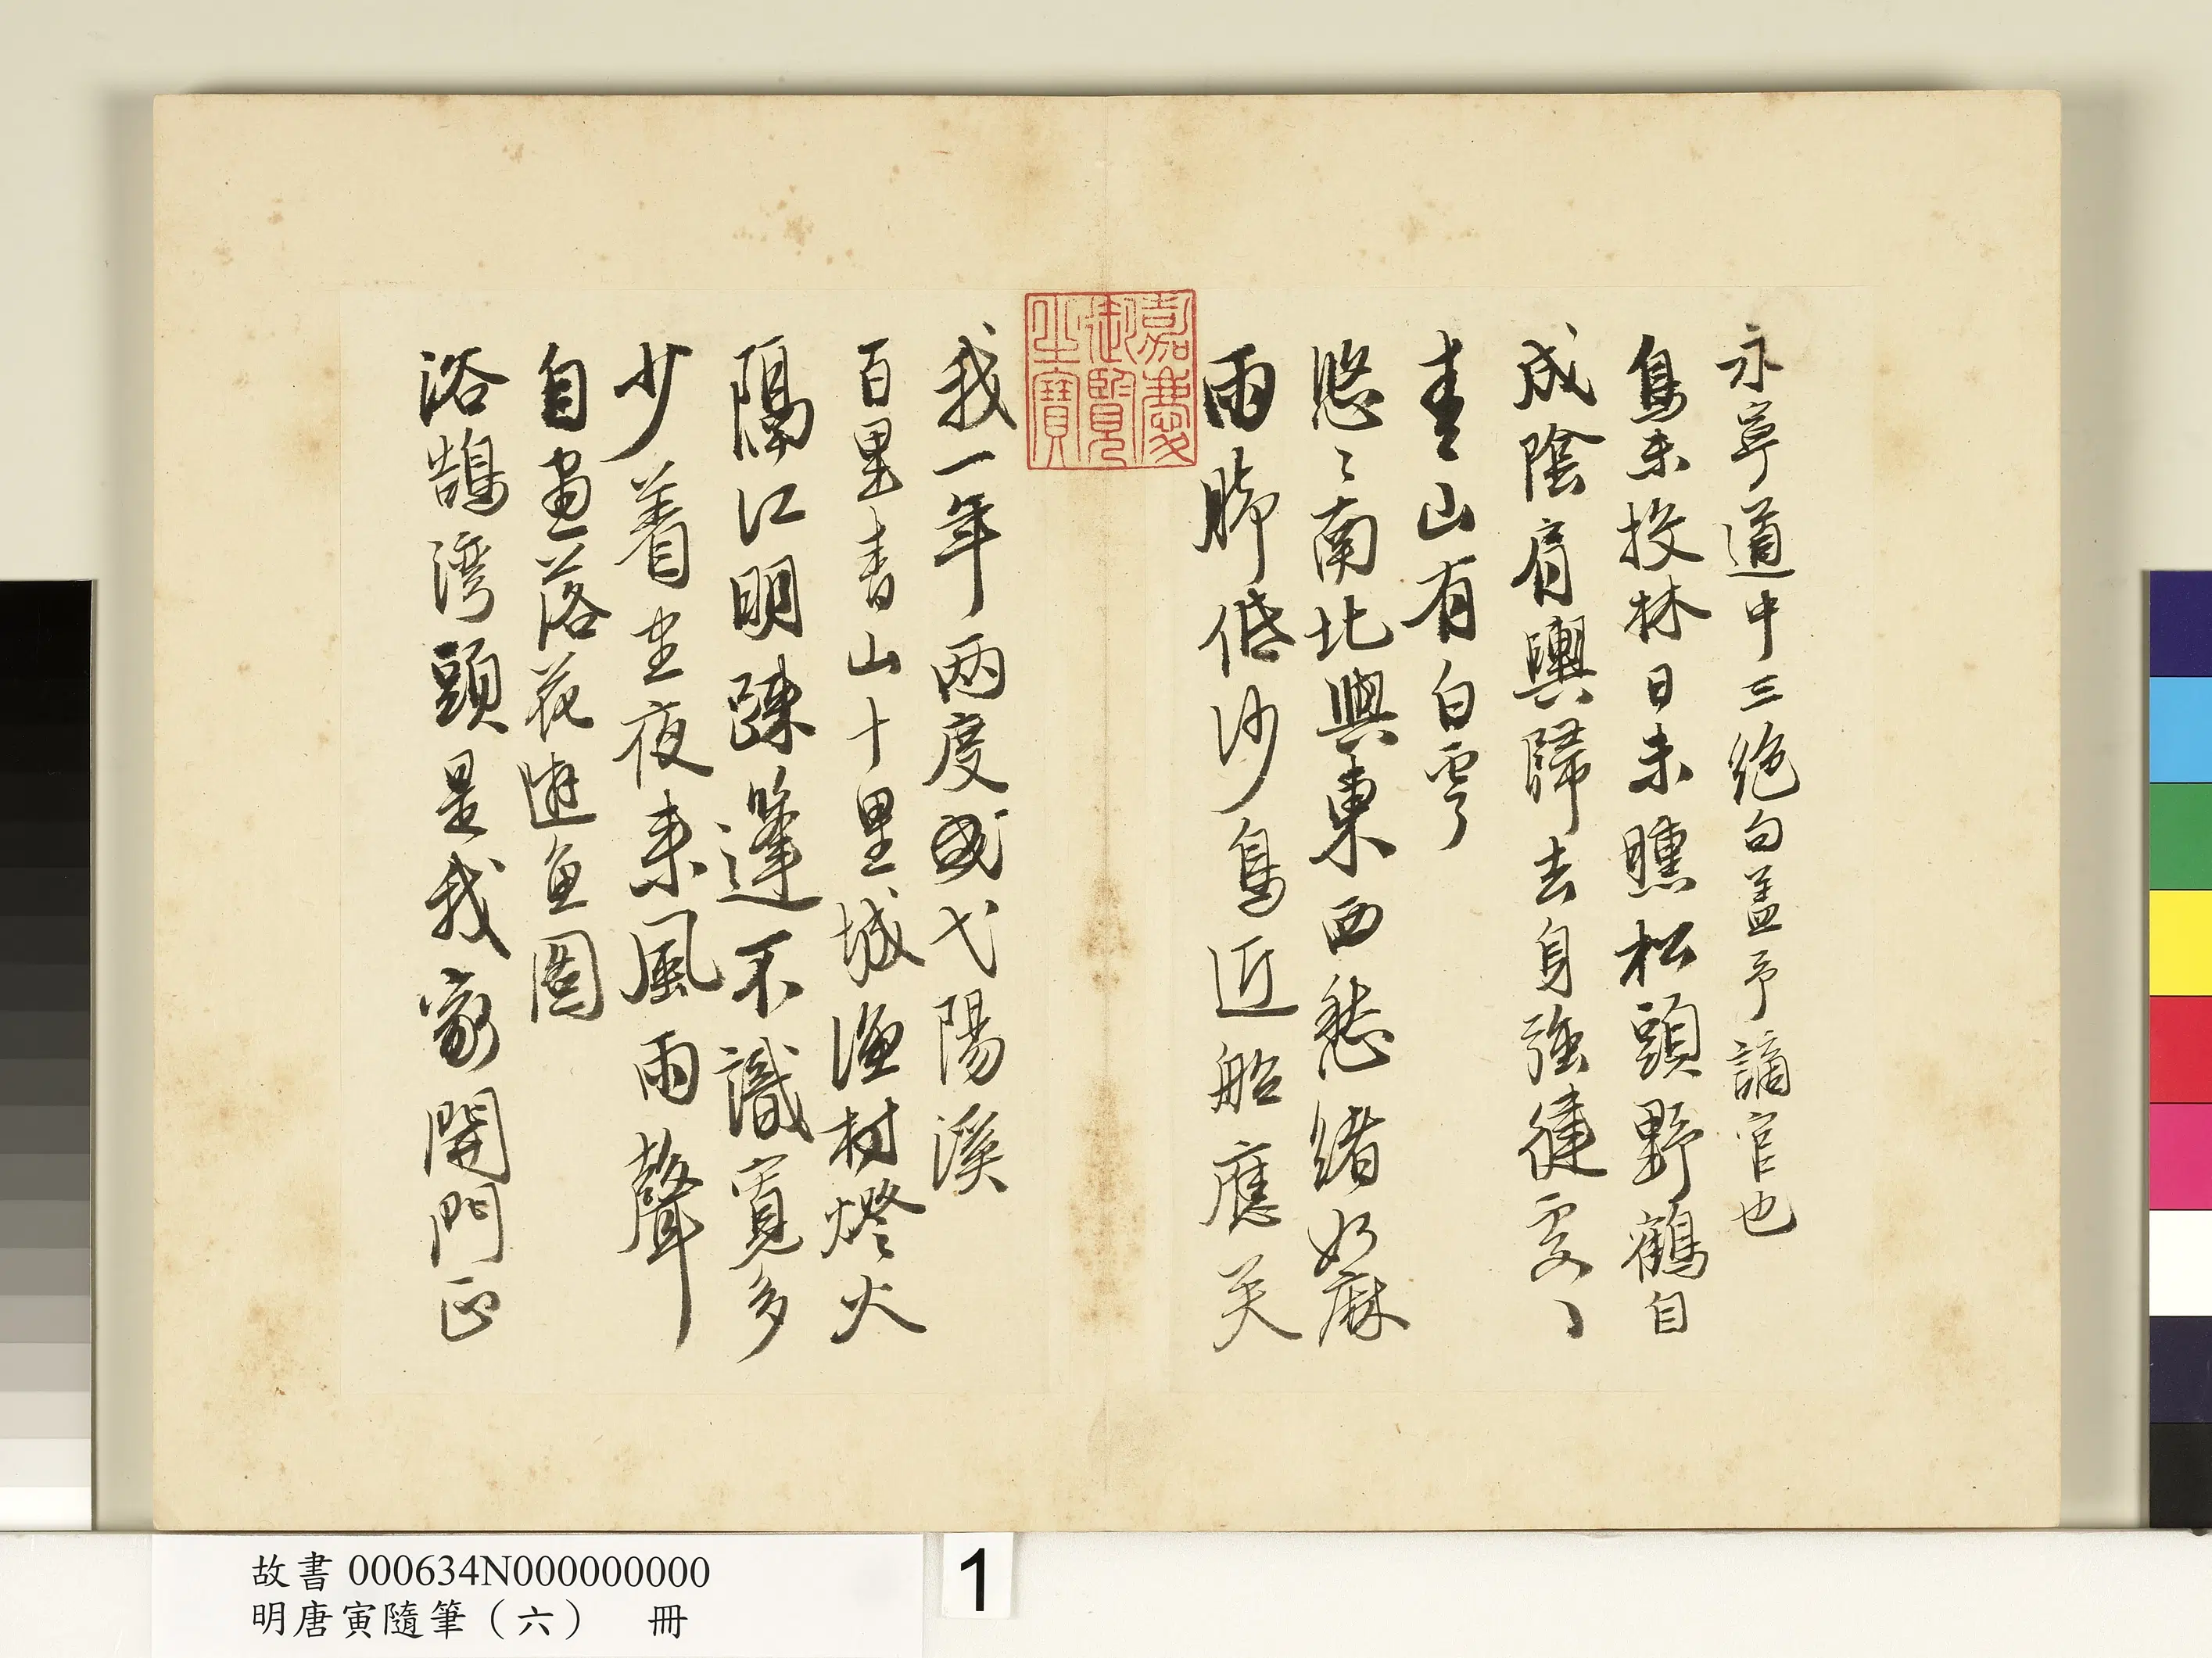 永寧道中三絶句盖予謫官也
鳥未投林日未曛松頭野鶴自
成陰肩輿歸去身強健處〻
青山有白雲
悠〻南北與東西愁緒如麻
雨脚低沙鳥近船應笑
嘉慶
御覽
之寶
我一年兩度弋陽溪
百里青山十里城漁村燈火
隔江明踈篷不識寬多
少着坐夜来風雨聲
自畫落花遊魚圖
浴鵠湾頭是我家開門正
故書 000634N000000000
明唐寅隨筆（六） 冊
1